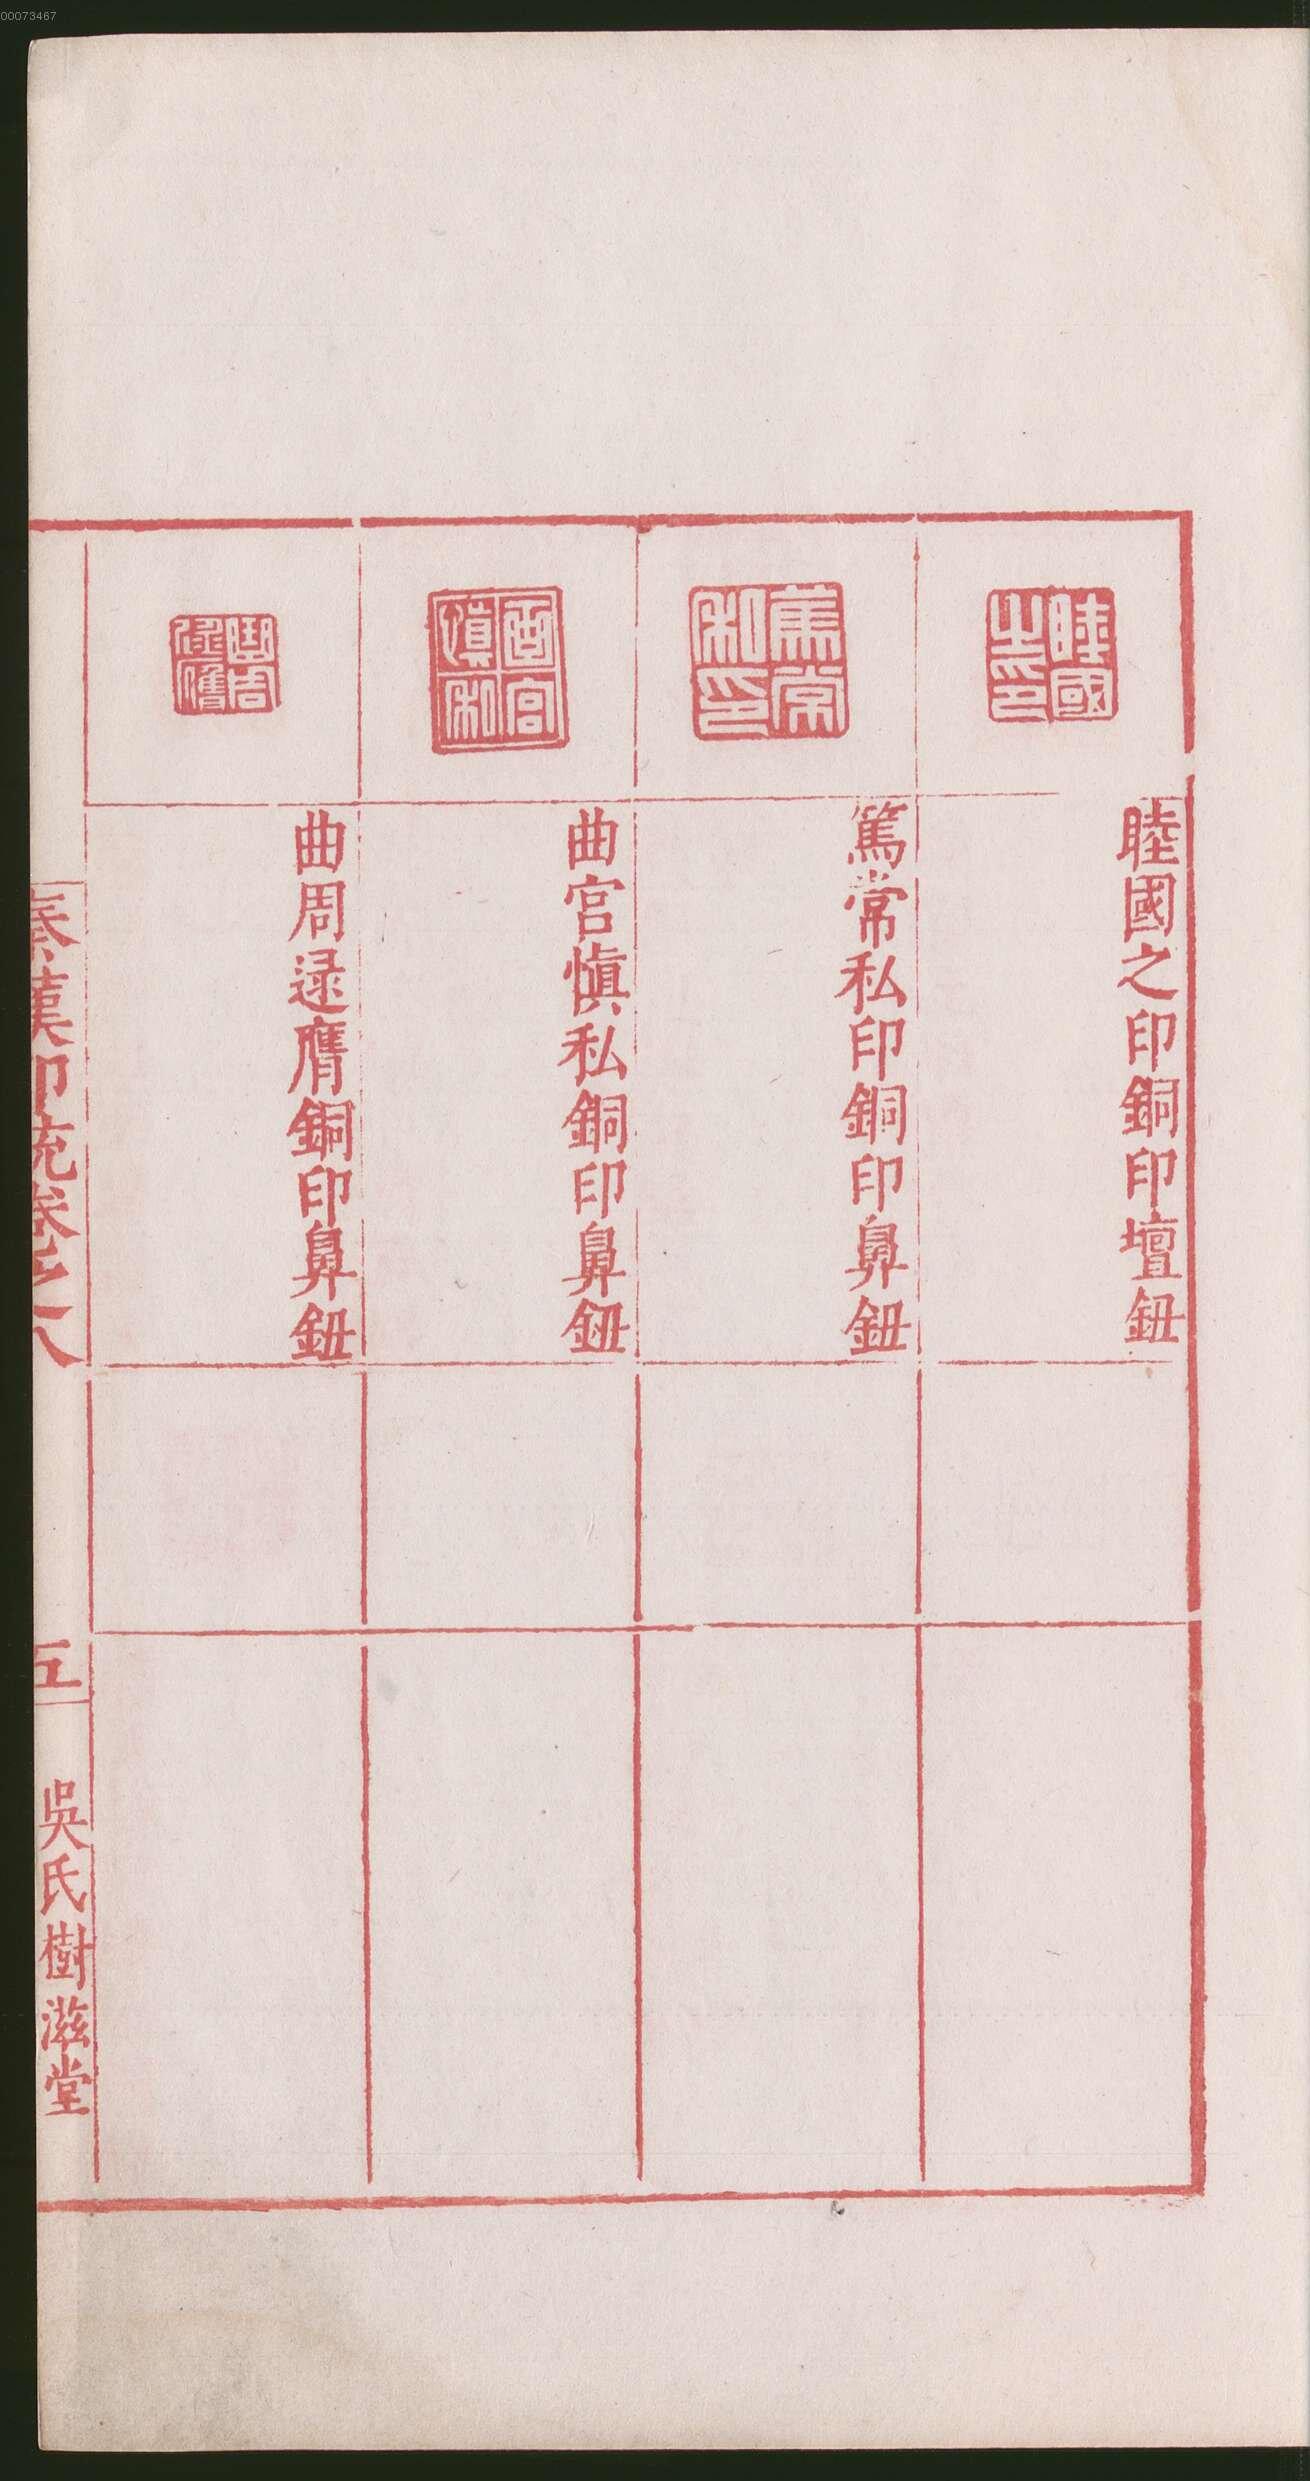 00073467
睦國之印
睦國之印銅印壇鈕
篤常私印
篤常私印銅印鼻鈕
曲宮慎私
曲宮慎私銅印鼻鈕
曲周逯𦢊
曲周逯膺銅印鼻鈕
秦漢印統卷之八
五
吳氏樹滋堂